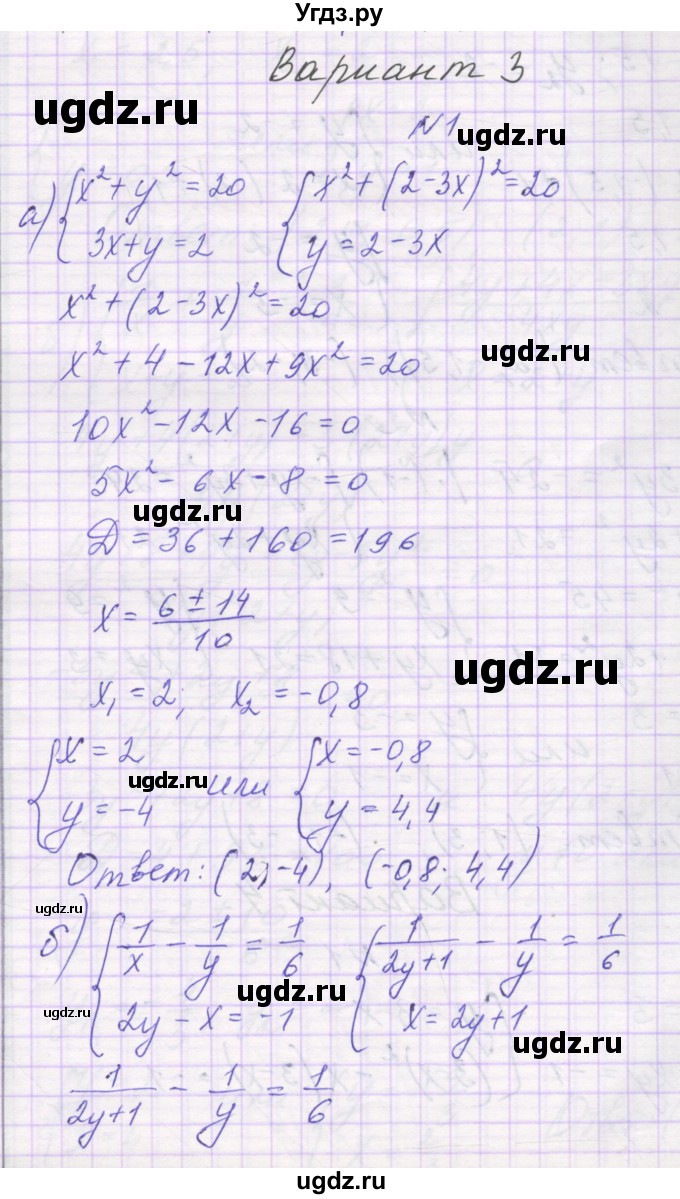 Угдз.ру
Вариант 3
ugdz.ru
№1 ugdz.ru
а) { x² + y² = 20 { x² + (2 - 3x)² = 20
3x + y = 2 y = 2 - 3x
x² + (2 - 3x)² = 20
ugdz.ru
x² + 4 - 12x + 9x² = 20
10x² - 12x - 16 = 0
5x² - 6x - 8 = 0
ugdz.ru
Д = 36 + 160 = 196
x = (6 ± 14)/10
ugdz.ru
x₁ = 2; x₂ = -0,8
{ x = 2 ugdz.ru или { x = -0,8
y = -4 y = 4,4
Ответ: (2; -4), (-0,8; 4,4)
ugdz.ru
б) { 1/x - 1/y = 1/6 { 1/(2y+1) - 1/y = 1/6
ugdz.ru
ugdz.ru
2y - x = -1 x = 2y + 1
ugdz.ru
1/(2y+1) - 1/y = 1/6
ugdz.ru